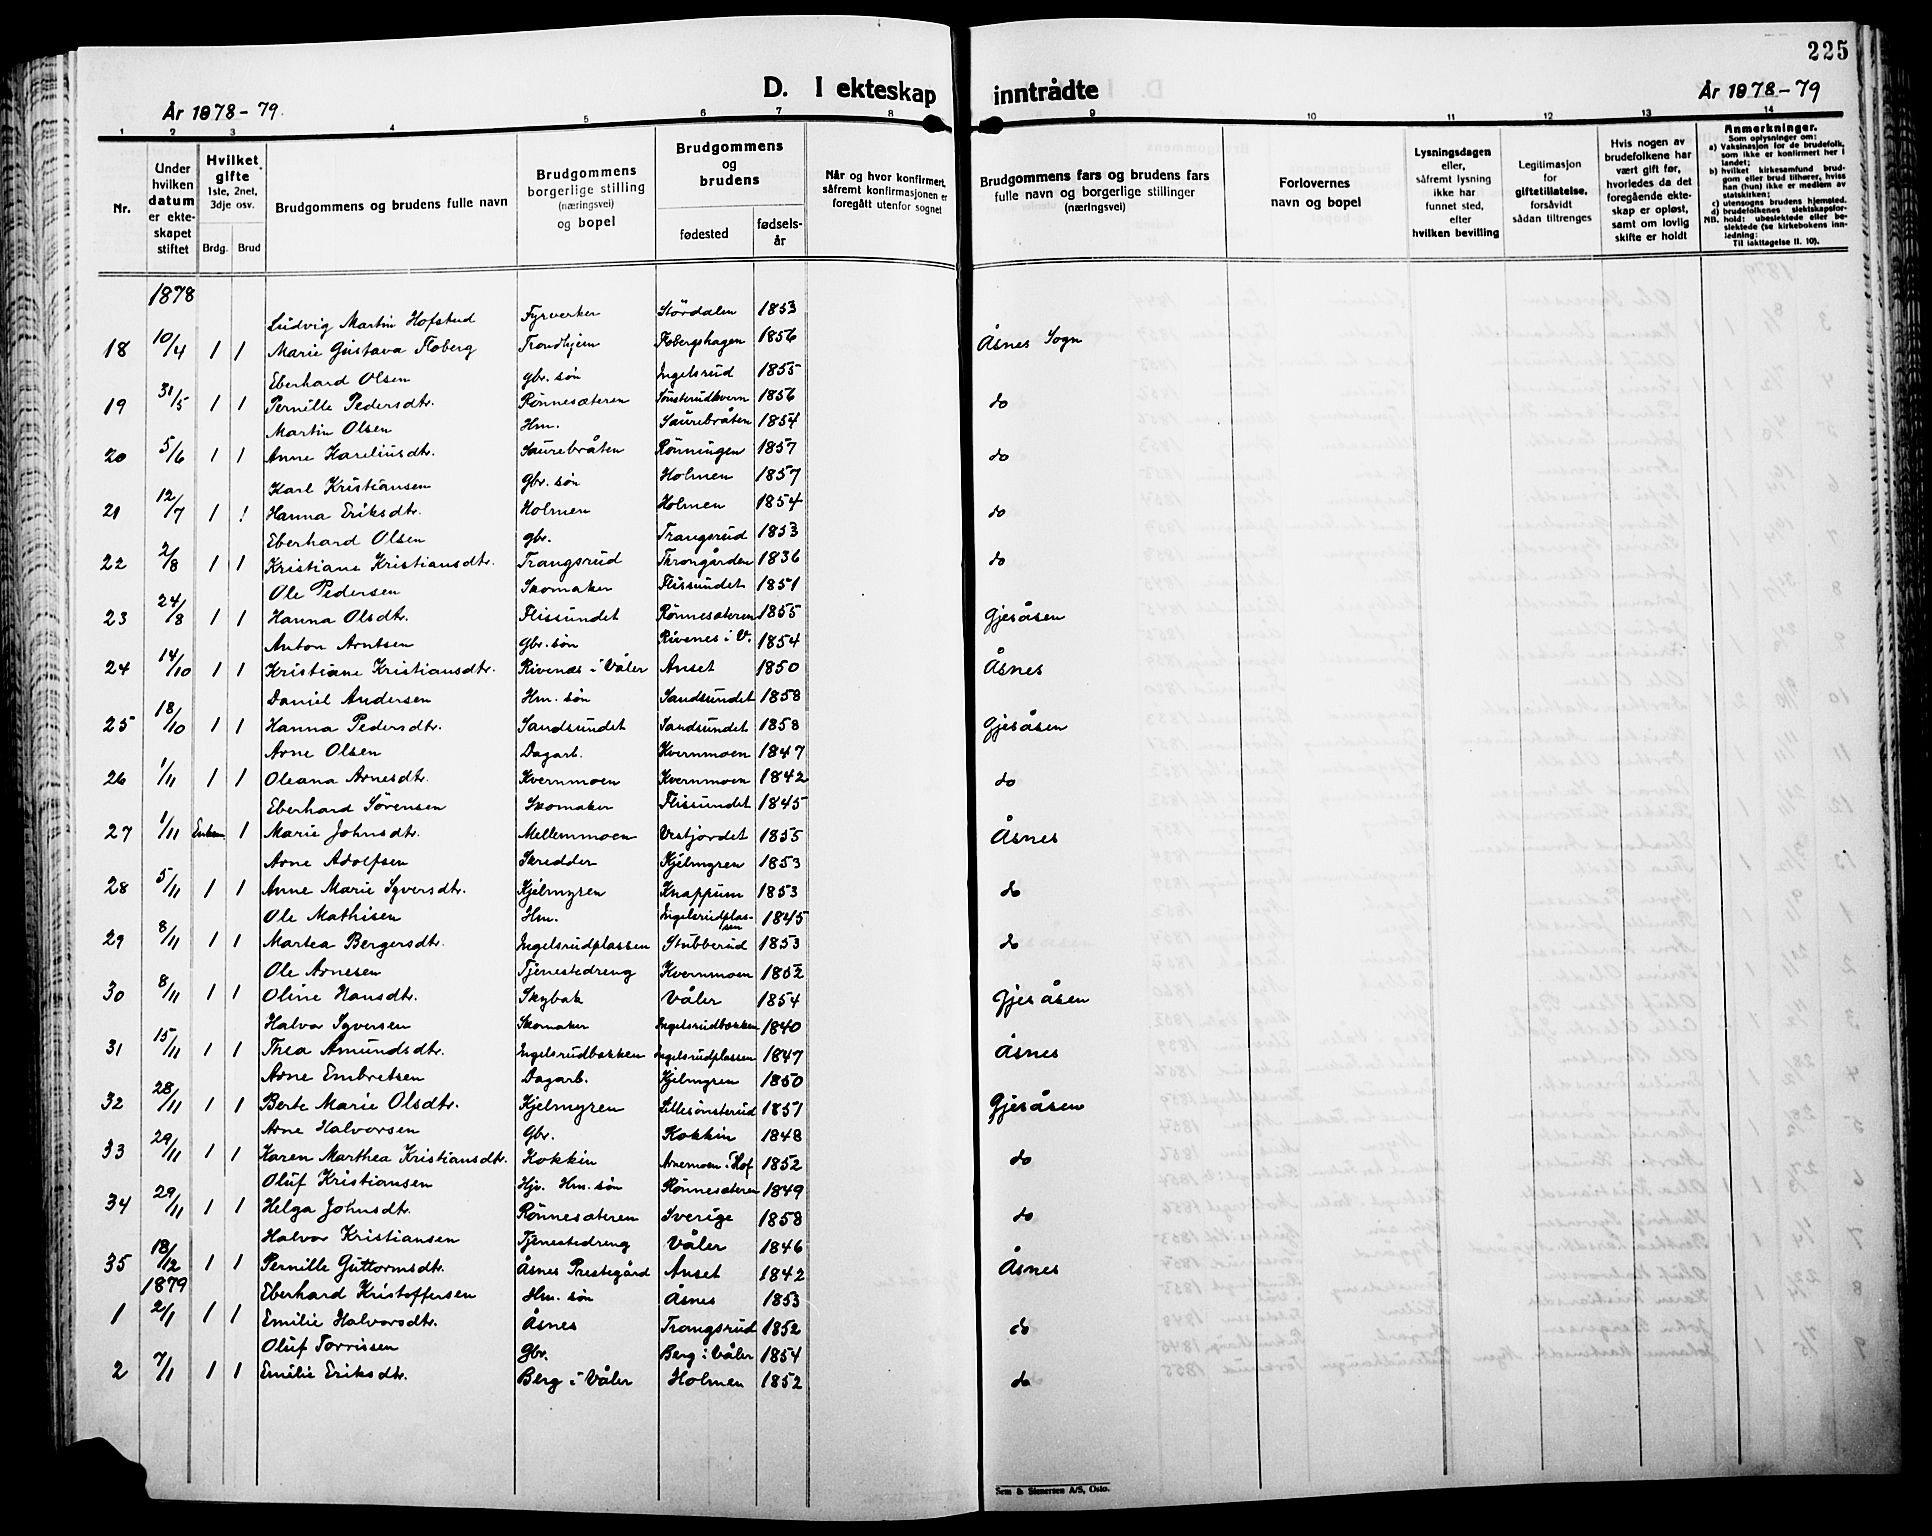 225
D. I ekteskap inntrådte
År 1878-79.
År 1878-79
1 2 3 4 5 6 7 8 9 10 11 12 13 14
Nr.
Under hvilken datum er ekteskapet stiftet
Hvilket gifte 1ste, 2net, 3dje osv.
Brdg. Brud
Brudgommens og brudens fulle navn
Brudgommens borgerlige stilling (næringsvei) og bopel
Brudgommens og brudens
fødested
fødselsår
Når og hvor konfirmert, såfremt konfirmasjonen er foregått utenfor sognet
Brudgommens fars og brudens fars fulle navn og borgerlige stillinger (næringsvei)
Forlovernes navn og bopel
Lysningsdagen eller, såfremt lysning ikke har funnet sted, efter hvilken bevilling
Legitimasjon for giftetillatelse, forsåvidt sådan tiltrenges
Hvis nogen av brudefolkene har vært gift før, hvorledes da det foregående ekteskap er opløst, samt om lovlig skifte er holdt
Anmerkninger.
Som oplysninger om:
a) Vaksinasjon for de brudefolk, som ikke er konfirmert her i landet;
b) hvilket kirkesamfund brudgom eller brud tilhører, hviss han (hun) ikke er medlem av statskirken;
c) utensogns brudens hjemsted.
d) brudefolkenes slektskapsforhold: ubeslektede eller beslektede (se kirkebokens innledning:
NB.
Til iakttagelse II. 10).
1878
Ludvig Martin Hofstad Fyrverker Stördalen 1853
18 10/4 1 1 Marie Gustava Floberg Trondhjem Flobergshagen 1856 Åsnes Sogn
Eberhard Olsen gbr. søn Ingelsrud 1855
19 31/5 1 1 Pernille Pedersdtr. Rönnesæteren Sönsterudkvern 1856 do
Martin Olsen Hm. Saurebråten 1854
20 5/6 1 1 Anne Kareliusdtr. Saurebråten Rönningen 1857 do
Karl Kristiansen gbr. søn Holmen 1857
21 12/7 1 1 Hanna Eriksdtr. Holmen Holmen 1854 do
Eberhard Olsen gbr. Trangsrud 1853
22 2/8 1 1 Kristiane Kristiansdtr. Trangsrud Throngården 1836 do
Ole Pedersen Skomaker Flissundet 1851
23 24/8 1 1 Hanna Olsdtr. Flissundet Rönnesæteren 1855 Gjesåsen
Anton Arntsen Gbr. søn Rivenes i V. 1854
24 14/10 1 1 Kristiane Kristiansdtr. Rivenæs i Våler Anset 1850 Åsnes
Daniel Andersen Hm. søn Sandsundet 1858
25 18/10 1 1 Hanna Pedersdtr. Sandsundet Sandsundet 1858 Gjesåsen
Arne Olsen Dagarb. Kvernmoen 1847
26 1/11 1 1 Oleana Arnesdtr. Kvernmoen Kvernmoen 1842 do
Eberhard Sørensen Skomaker Flissundet 1845
27 1/11 Enkem 1 Marie Johnsdtr. Mellemmoen Vestjordet 1855 Åsnes
Arne Adolfsen Skredder Kjelmyren 1853
28 5/11 1 1 Anne Marie Syversdtr. Kjelmyren Knappum 1853 do
Ole Mathisen Hm. Ingelsrudplassen 1845
29 8/11 1 1 Martea Bergersdtr. Ingelsrudplassen Stubberud 1853 do
Ole Arnesen Tjenestedreng Kvernmoen 1852
30 8/11 1 1 Oline Hansdtr. Skybak Våler 1854 Gjesåsen
Halvor Syversen Skomaker Ingelsrudbakken 1840
31 15/11 1 1 Thea Amundsdtr. Ingelsrudbakken Ingelsrudplassen 1847 Åsnes
Arne Embretsen Dagarb. Kjelmyren 1850
32 28/11 1 1 Berte Marie Olsdtr. Kjelmyren Lillesönsterud 1851 Gjesåsen
Arne Halvorsen Gbr. Kokkin 1848
33 29/11 1 1 Karen Marthea Kristiansdtr. Kokkin Arnemoen i Hof 1852 do
Oluf Kristiansen Hjv. Hm. søn Rönnesæteren 1849
34 29/11 1 1 Helga Johnsdtr. Rönnesæteren Sverige 1858 do
Halvor Kristiansen Tjenestedreng Våler 1846
35 18/12 1 1 Pernille Guttormsdtr. Åsnes Prestegård Anset 1842 Åsnes
1879
Eberhard Kristoffersen Hm. søn Åsnes 1853
1 2/1 1 1 Emilie Halvorsdtr. Åsnes Trangsrud 1852 do
Oluf Torrissen Gbr. Berg i Våler 1854
2 7/1 1 1 Emilie Eriksdtr. Berg i Våler Holmen 1852 do
Sem & Stenersen A/S, Oslo.